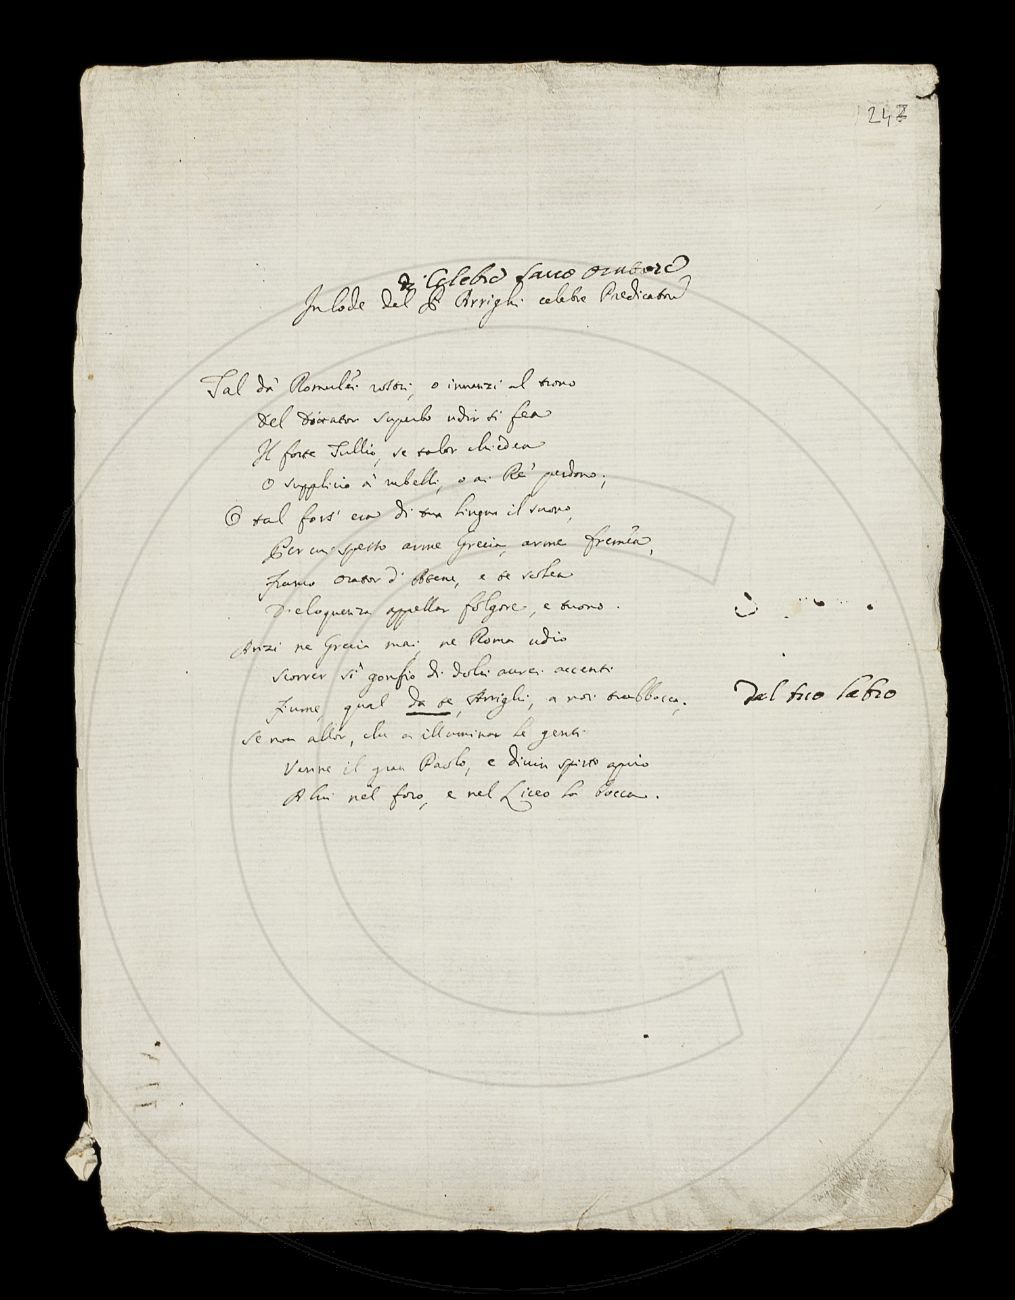 242
di Celebre sacro Oratore
In lode del P. Arrighi celebre Predicatore
Tal da' Romulei rostri, o innanzi al trono
Del Dittator superbo udir si fea
Il forte Tullio, se talor chiedea
O supplicio a' rubelli, o ai Re' perdono;
O tal fors' era di tua lingua il suono,
Per cui spesso arme Grecia, arme fremea,
Franco Orator d'Atene, e te solea
D'eloquenza appellar folgore, e tuono.
Anzi ne Grecia mai, ne Roma udio
Scorrer sì gonfio di dolci aurei accenti
Fiume, qual da te, Arrighi, a noi trabbocca,
Dal tuo labro
Se non allor, che a illuminar le genti
Venne il gran Paolo, e divin spirto aprio
A lui nel foro, e nel Liceo la bocca.